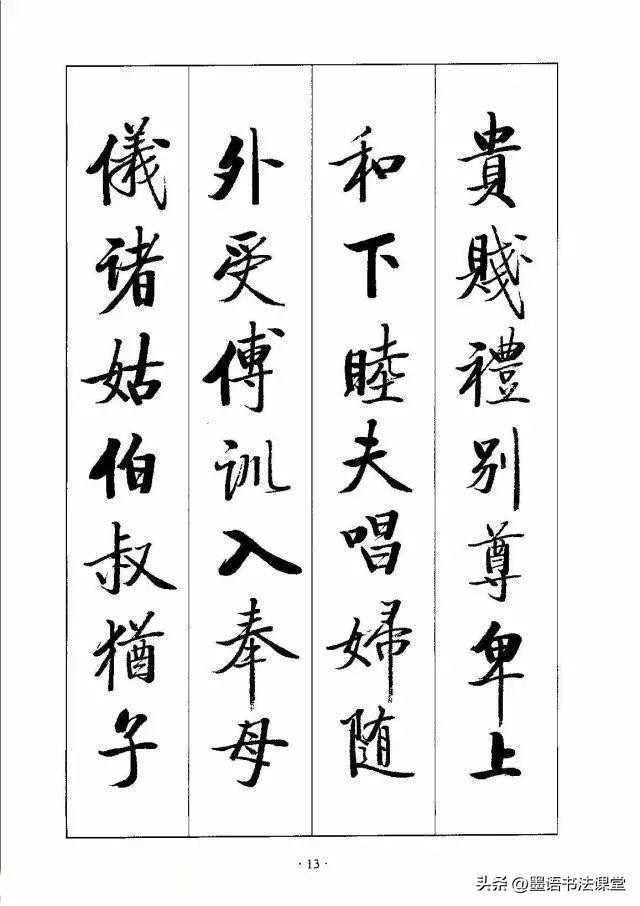 貴賤禮別尊卑上
和下睦夫唱婦随
外受傅训入奉母
儀诸姑伯叔猶子
·13·
头条@墨语书法课堂